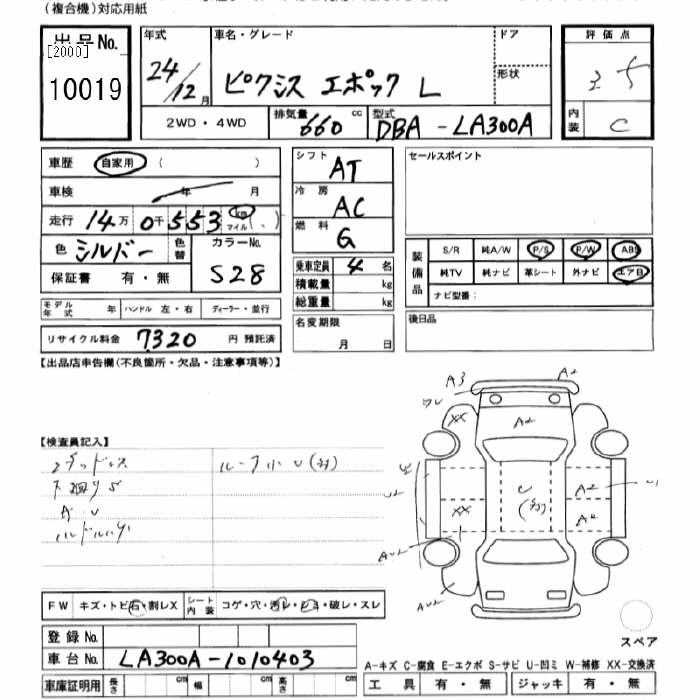 (複合機)対応用紙
出品No.
[2000]
10019
年式
24/12月
車名・グレード
ピクシス エポック L
ドア
形状
評価点
35
内装
C
2WD・4WD
排気量
660 cc
型式
DBA-LA300A
車歴 自家用 ( )
車検 年 月
走行 14万0千553 km マイル ( )
色 シルバー 色替
カラーNo.
S28
保証書 有・無
シフト AT
冷房 AC
燃料 G
乗車定員 4 名
積載量 kg
総重量 kg
名変期限
月 日
セールスポイント
装備品
S/R 純A/W P/S P/W ABS
純TV 純ナビ 革シート 外ナビ エアB
ナビ型番:
後日品
モデル年式 年 ハンドル 左・右 ディーラー・並行
リサイクル料金 7320 円 預託済
【出品店申告欄(不良箇所・欠品・注意事項等)】
【検査員記入】
下廻りS
A・U
A3
A2
XX
A2
A2
XX
A2
AU2
AU2
FW キズ・トビ石・割レX
シート内装 コゲ・穴・汚レ・シミ・破レ・スレ
登録No.
車台No. LA300A-1010403
車庫証明用 長さ cm 幅 cm 高さ cm
スペア
A-キズ C-腐食 E-エクボ S-サビ U-凹ミ W-補修 XX-交換済
工具 有・無 ジャッキ 有・無